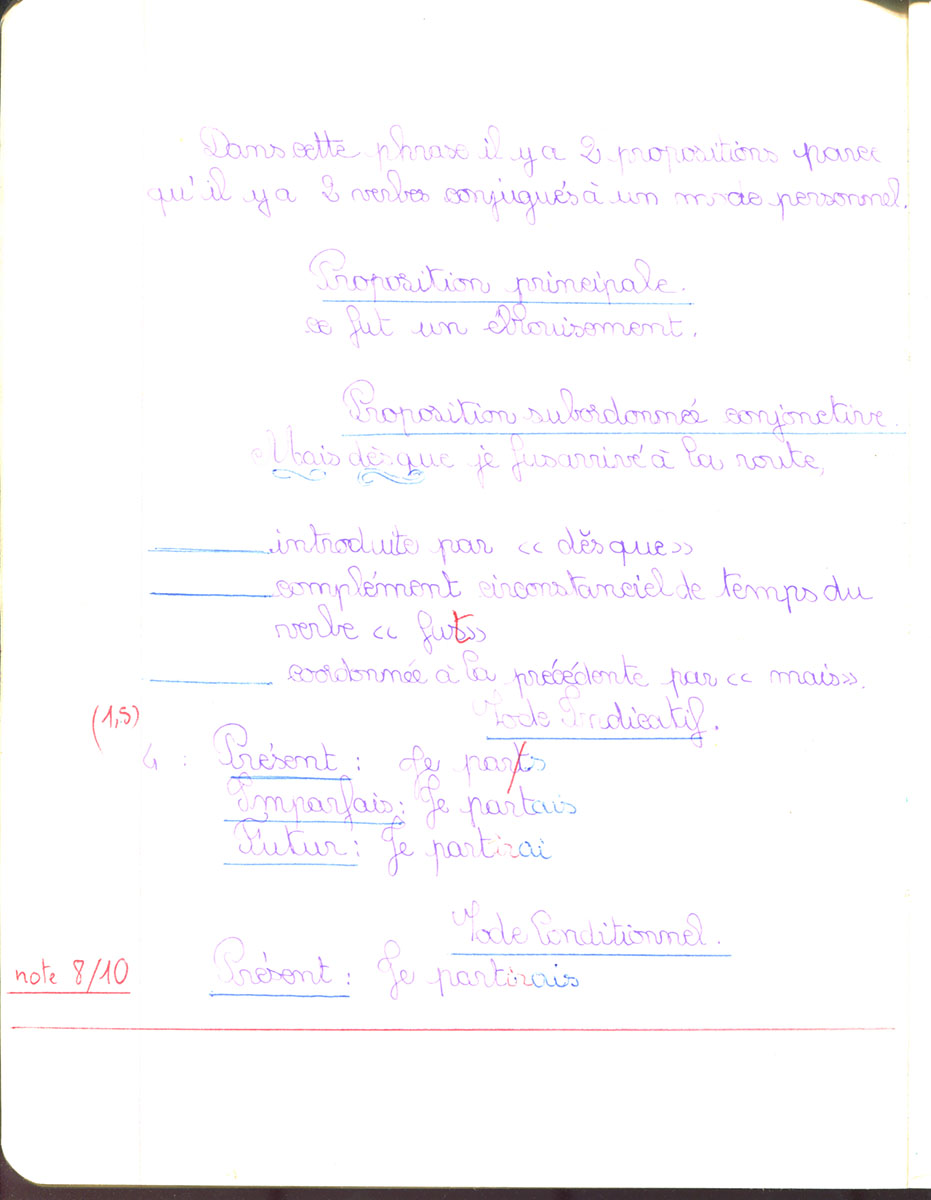 Dans cette phrase il y a 2 propositions parce
qu'il y a 2 verbes conjugués à un mode personnel.
Proposition principale.
ce fut un éblouissement.
Proposition subordonnée conjonctive.
Mais dès que je fus arrivé à la route,
introduite par << dès que >>
complément circonstanciel de temps du
verbe << fut >>
coordonnée à la précédente par << mais >>.
Mode Indicatif.
(1,5)
4 : Présent : Je parts
Imparfais : Je partais
Futur : Je partirai
Mode Conditionnel.
note 8/10
Présent : Je partirais